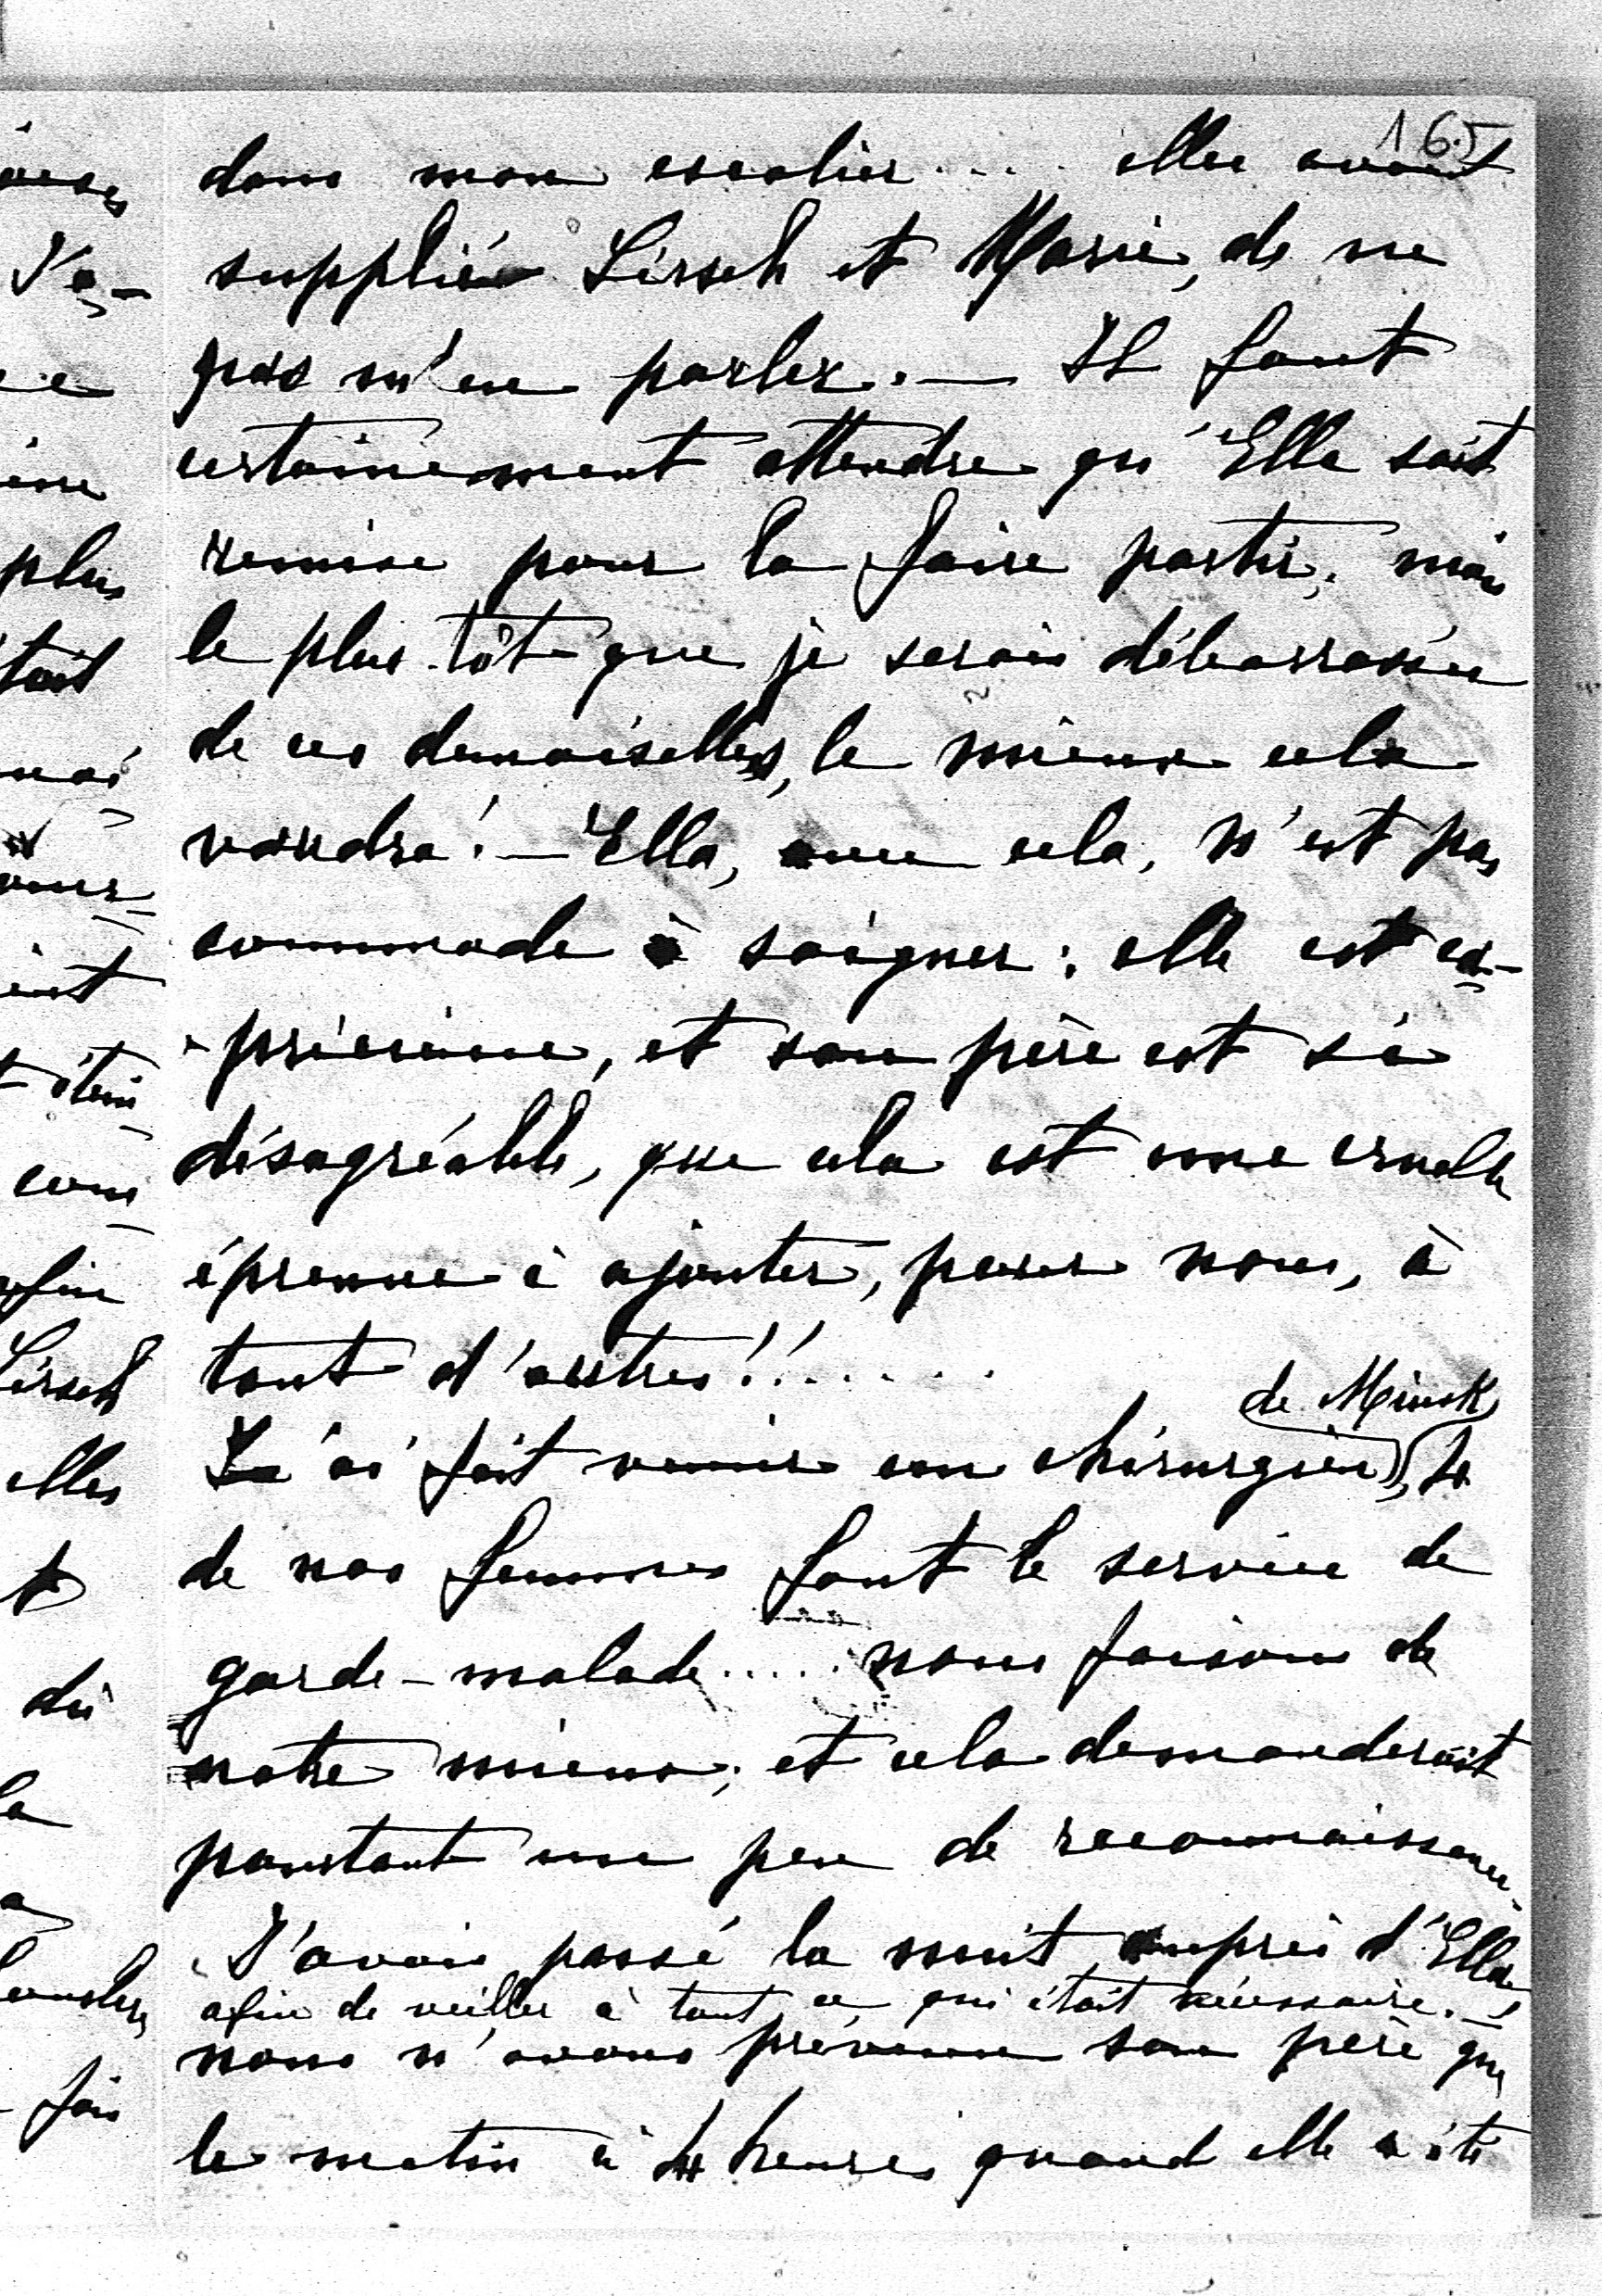 165
dans mon escalier .... elles avaient
supplié Lissch et Marie, de ne
pas m'en parler. — Il faut
certainement attendre qu'Ella soit
remise pour la faire partir; mais
le plus tôt que je serais débarrassée
de ces demoiselles, le mieux cela
vaudra! — Ella, avec cela, n'est pas
commode à soigner: elle est ca-
-pricieuse, et son père est si
désagréable, que cela est une cruelle
épreuve à ajouter, pour nous, à
tant d'autres!! ......
de Minsk
J'ai fait venir un chirurgien,
de nos femmes font le service de
garde-malade ..... nous faisons de
notre mieux; et cela demanderait
pourtant un peu de reconnaissance.
J'avais passé la nuit auprès d'Ella
afin de veiller à tout ce qui était nécessaire. —
nous n'avons prévenu son père que
le matin à heures quand elle a été
plus
tait
elles
la
fois